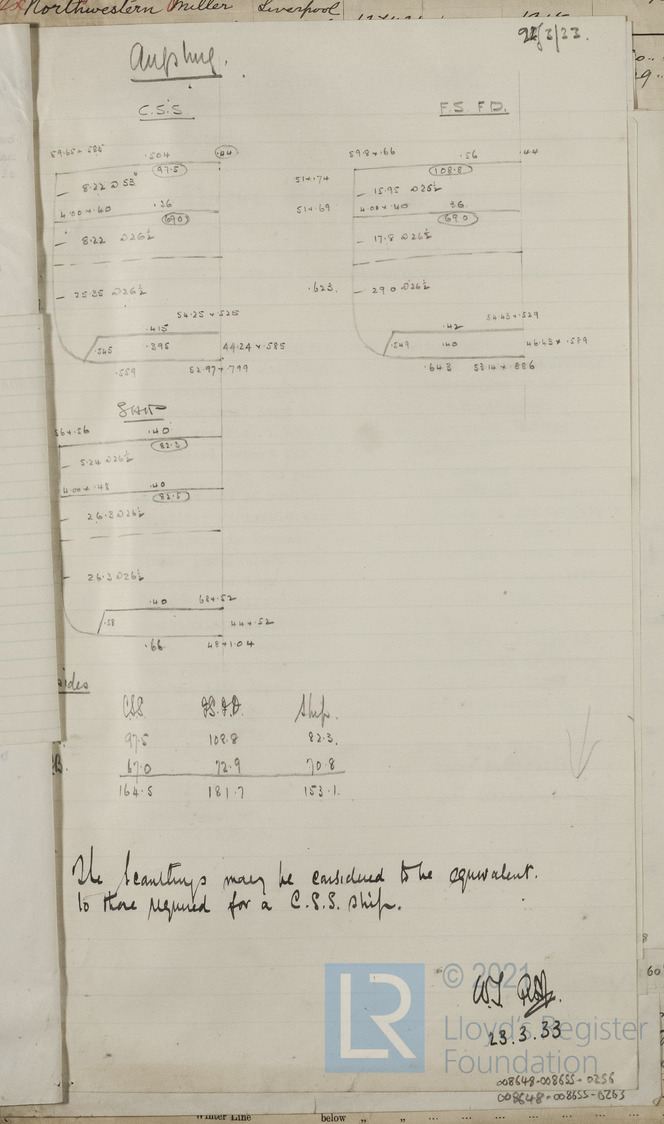 Northwestern Miller Liverpool
/3/23.
C.S.S
F.S. F.D.
59.65 × .585 .504 .44
97.5
8.22 @ 33"
4.00 × .40 .36
690
8.22 @ 26½
25.35 @ 26½
54.25 × .525
.415
.545 .395 44.24 × .585
.559 52.97 × .799
51 × .74
51 × .69
.623.
59.8 × .66 .56 .44
108.8
15.95 @ 26½
4.00 × .40 36
690
17.8 @ 26½
29.0 @ 26½
54.43 × .529
.42
.549 .40 46.43 × .579
.643 53.14 × .886
Ship
56 × .56 .40
82.3
5.24 @ 26½
4.00 × .48 .40
82.5
26.3 @ 26½
26.3 @ 26½
.40 68 × .52
.58 44 × .52
.66 48 × 1.04
sides
CSS. F.S.F.D. Ship.
97.5 108.8 82.3.
B. 67.0 72.9 70.8
164.5 181.7 153.1.
The scantlings may be considered to be equivalent.
to those required for a C.S.S. ship.
© 2021
23.3.33
LR
Lloyd's Register
Foundation
008648-008655-0256
008648-008655-0263
Winter Line below " "